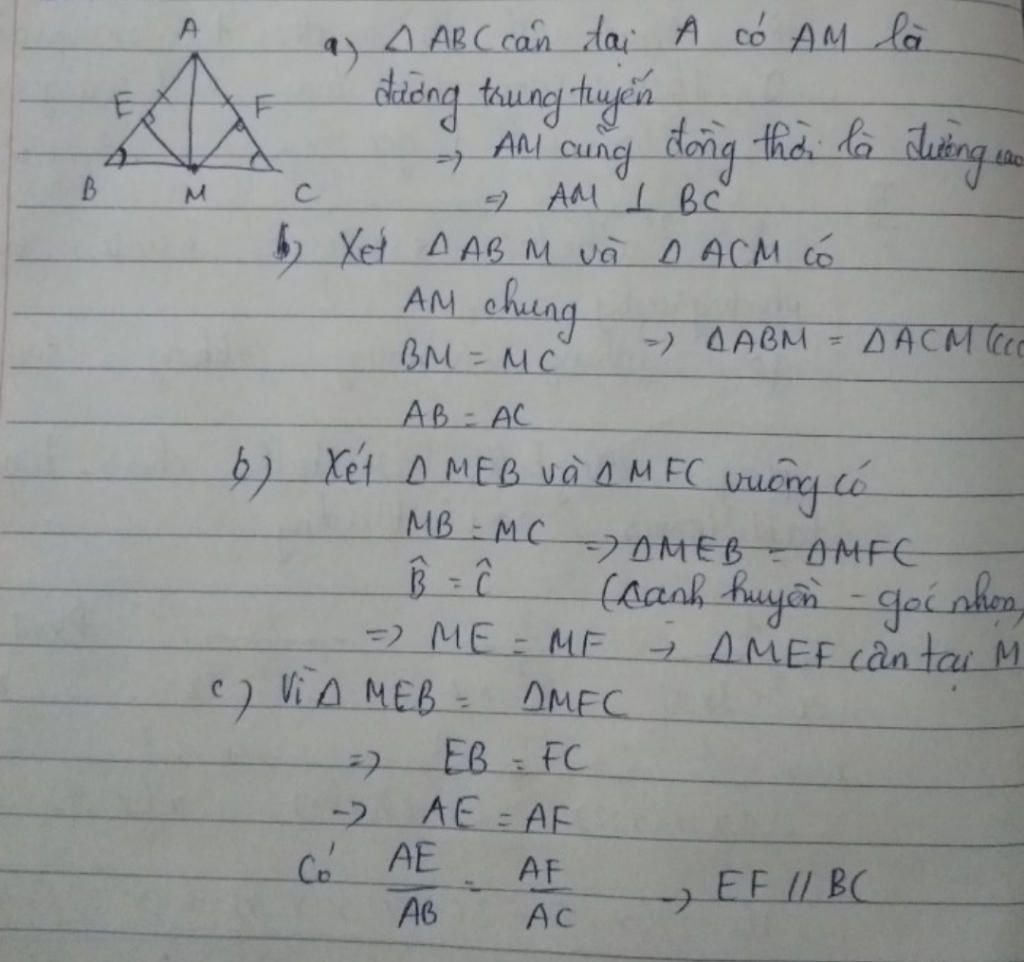 A
E F
B M C
a) Δ ABC cân tại A có AM là
đường trung tuyến
=> AM cũng đồng thời là đường cao
=> AM ⊥ BC
b) Xét Δ ABM và Δ ACM có
AM chung
BM = MC => ΔABM = ΔACM (ccc
AB = AC
b) Xét Δ MEB và Δ MFC vuông có
MB = MC => ΔMEB = ΔMFC
B̂ = Ĉ (cạnh huyền - góc nhọn)
=> ME = MF → Δ MEF cân tại M
c) Vì Δ MEB = ΔMFC
=> EB = FC
-> AE = AF
Có AE/AB = AF/AC -> EF // BC